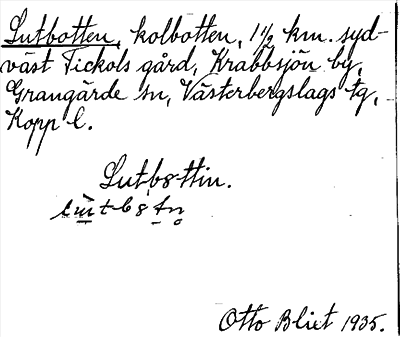 Lutbotten, kolbotten, 1½ km. syd-
väst Tickols gård, Krabbsjön by,
Grangärde sn, Västerbergslags tg,
Kopp l.
Lutb8ttin.
Otto Bliet 1935.